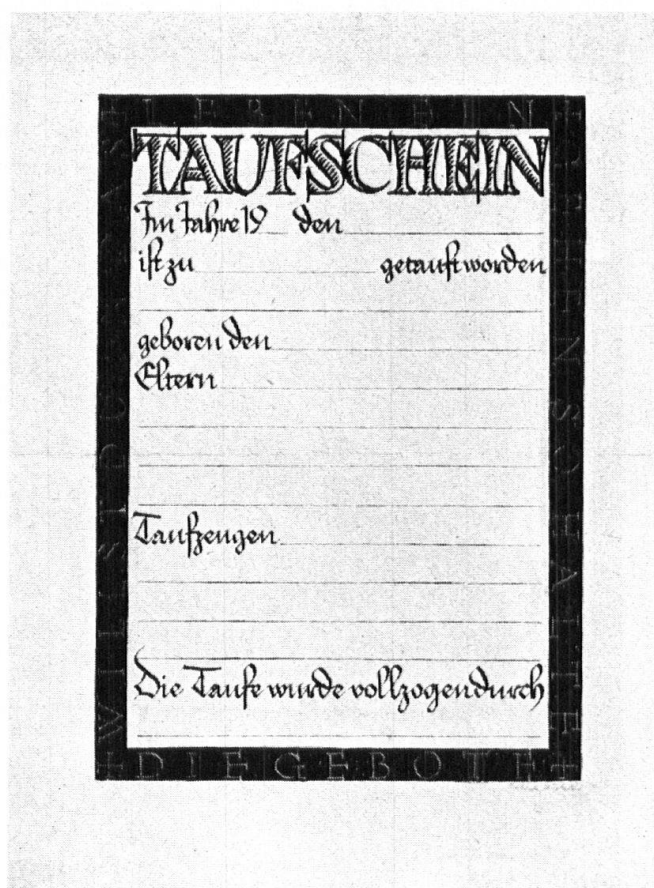 WILLST DU DAS
LEBEN EIN
GEHEN SO HALTE
DIE GEBOTE
TAUFSCHEIN
Im Jahre 19 den
ist zu getauft worden
geboren den
Eltern
Taufzeugen
Die Taufe wurde vollzogen durch